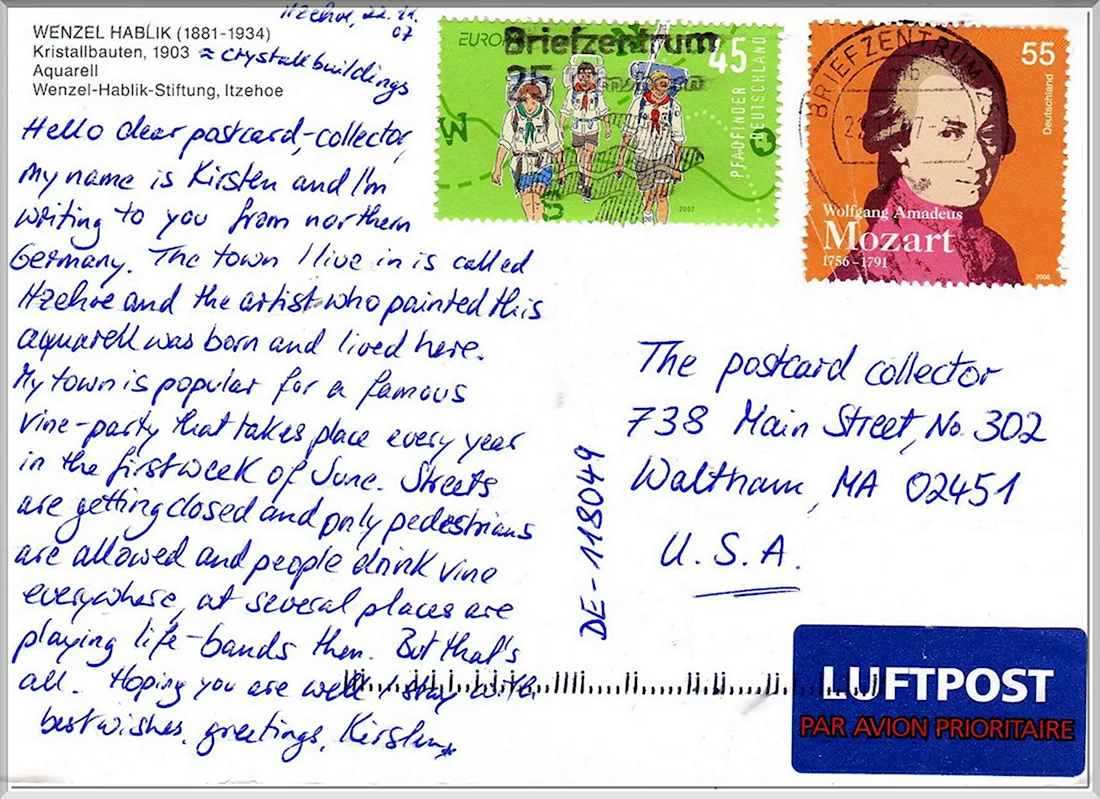 Itzehoe, 22.11.
07
WENZEL HABLIK (1881-1934)
Kristallbauten, 1903 ≈ crystall buildings
Aquarell
Wenzel-Hablik-Stiftung, Itzehoe
Hello dear postcard-collector,
my name is Kirsten and I'm
writing to you from northern
Germany. The town I live in is called
Itzehoe and the artist who painted this
aquarell was born and lived here.
My town is popular for a famous
vine-party that takes place every year
in the first week of June. Streets
are getting closed and only pedestrians
are allowed and people drink vine
everywhere, at several places are
playing life-bands then. But that's
all. Hoping you are well I stay with
best wishes, greetings, Kirsten*
EUROPA
Briefzentrum
25
45
PFADFINDER
DEUTSCHLAND
W
O
S
2007
BRIEFZENTRUM
55
Deutschland
Wolfgang Amadeus
Mozart
1756–1791
2006
The postcard collector
738 Main Street, No. 302
Waltham, MA 02451
U.S.A.
DE-118049
LUFTPOST
PAR AVION PRIORITAIRE